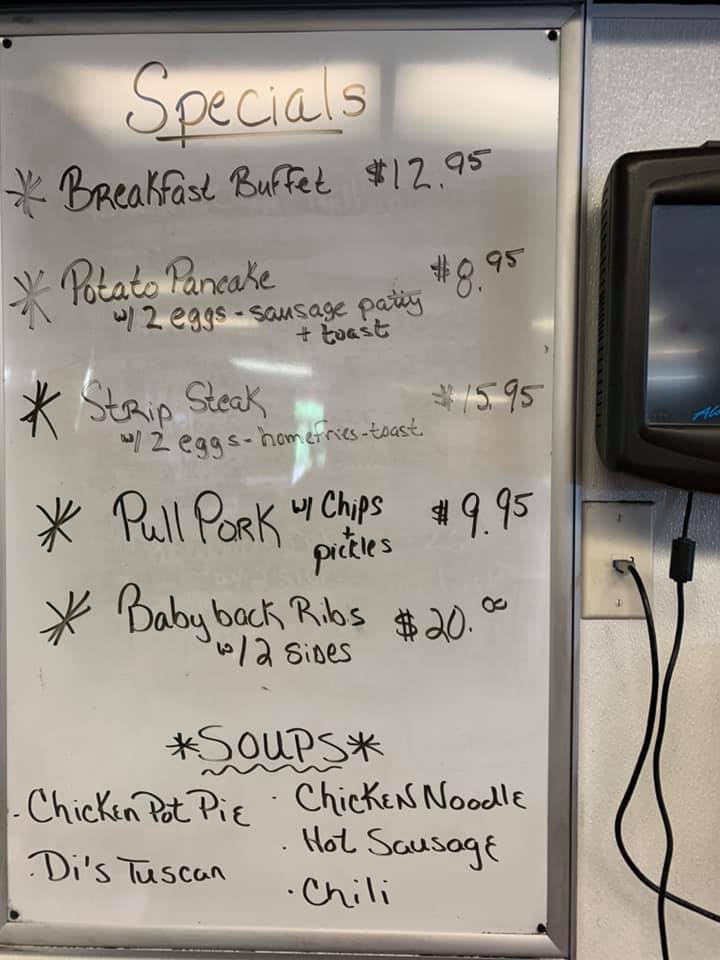 Specials
* Breakfast Buffet $12.95
* Potato Pancake $8.95
w/ 2 eggs - sausage patty
+ toast
* Strip Steak $15.95
w/ 2 eggs - homefries - toast
* Pull Pork w/ Chips $9.95
+
pickles
* Baby back Ribs $20.00
w/ 2 sides
*SOUPS*
- Chicken Pot Pie
· Chicken Noodle
· Hot Sausage
· Di's Tuscan
· Chili